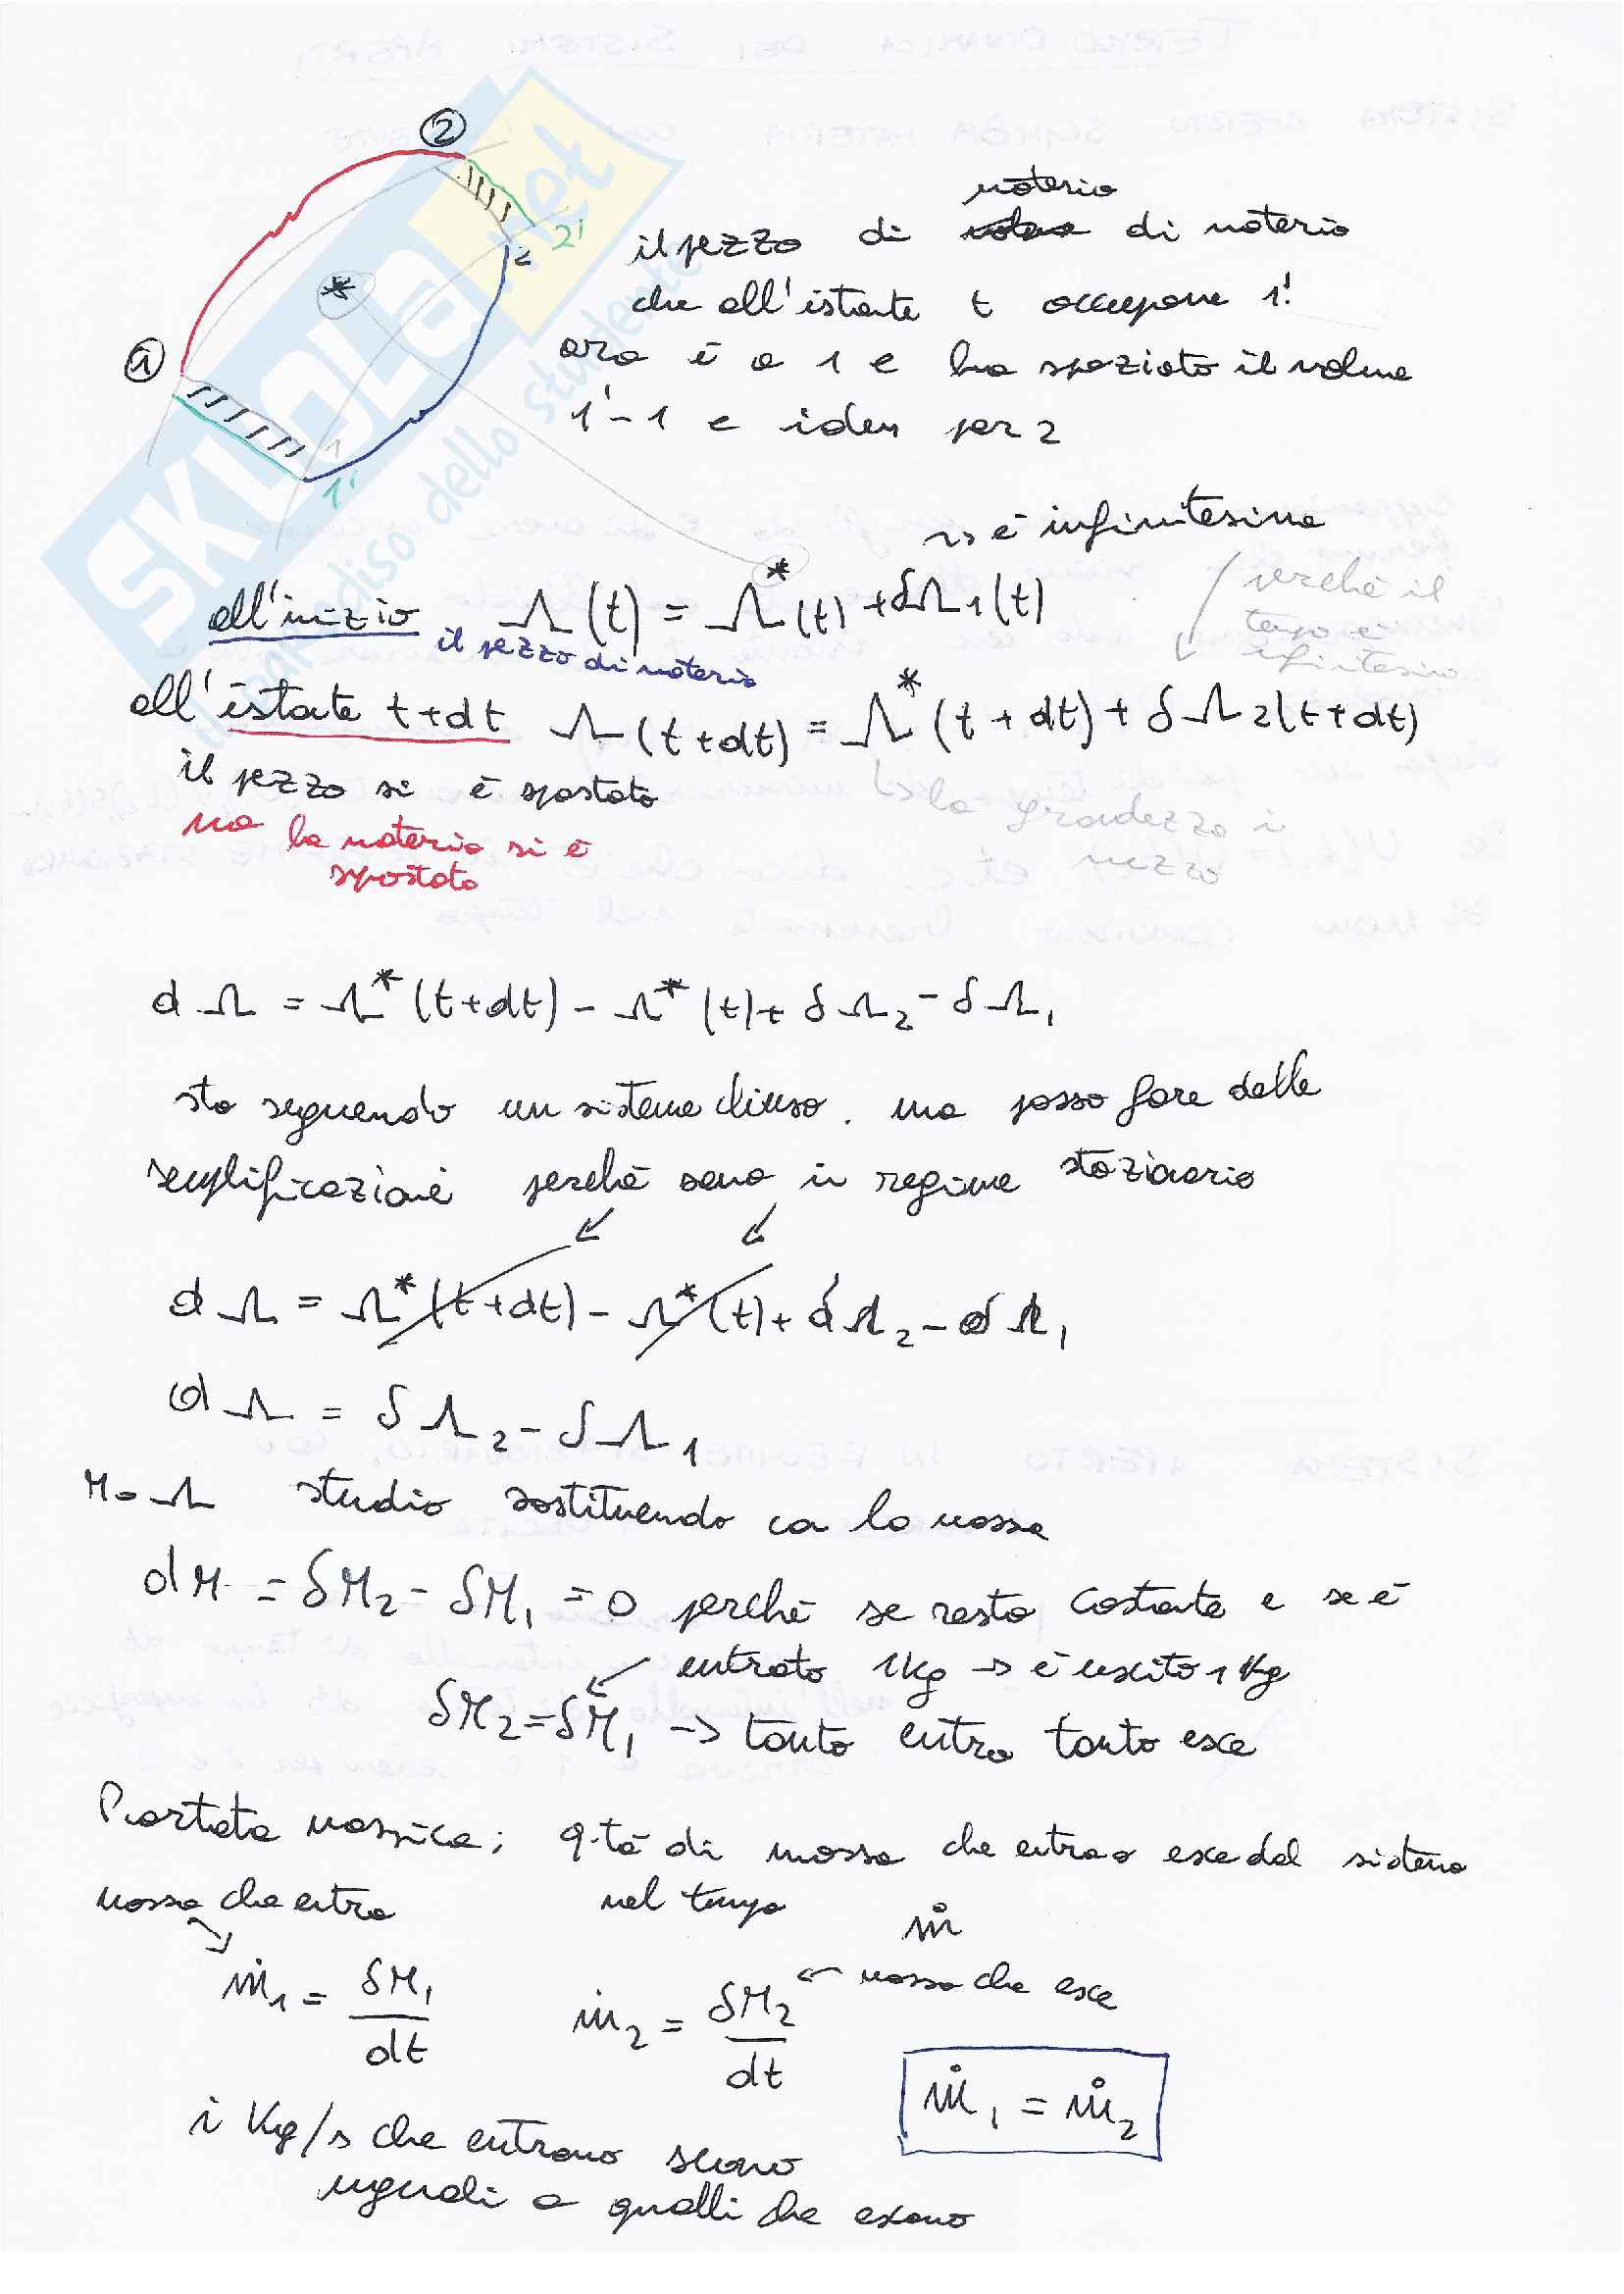 ②
materia
il pezzo di di materia
2 2'
che all'istante t occupava 1'
①
ora è a 1 e ha spaziato il volume
1'-1 e idem per 2
1
1'
SKUOLA.net
il paradiso dello studente
*
↳ è infinitesima
perché il
tempo è
infinitesimo
all'inizio Ω(t) = Ω*(t) + δΩ1(t)
il pezzo di materia
all'istante t+dt Ω(t+dt) = Ω*(t+dt) + δΩ2(t+dt)
il pezzo si è spostato
↳ la grandezza in mezzo
ma la materia si è
spostata
dΩ = Ω*(t+dt) - Ω*(t) + δΩ2 - δΩ1
sto seguendo un sistema chiuso. ma posso fare delle
semplificazioni perché sono in regime stazionario
dΩ = Ω*(t+dt) - Ω*(t) + δΩ2 - δΩ1
dΩ = δΩ2 - δΩ1
M=Ω studio sostituendo con la massa
dM = δM2 - δM1 = 0 perché se resta costante e se è
entrato 1kg → è uscito 1kg
δM2 = δM1 → tanto entra tanto esce
Portata massica; q.tà di massa che entra o esce dal sistema
nel tempo
massa che entra
ṁ
ṁ1 = δM1/dt ṁ2 = δM2/dt ← massa che esce
ṁ1 = ṁ2
i Kg/s che entrano sono
uguali a quelli che escono